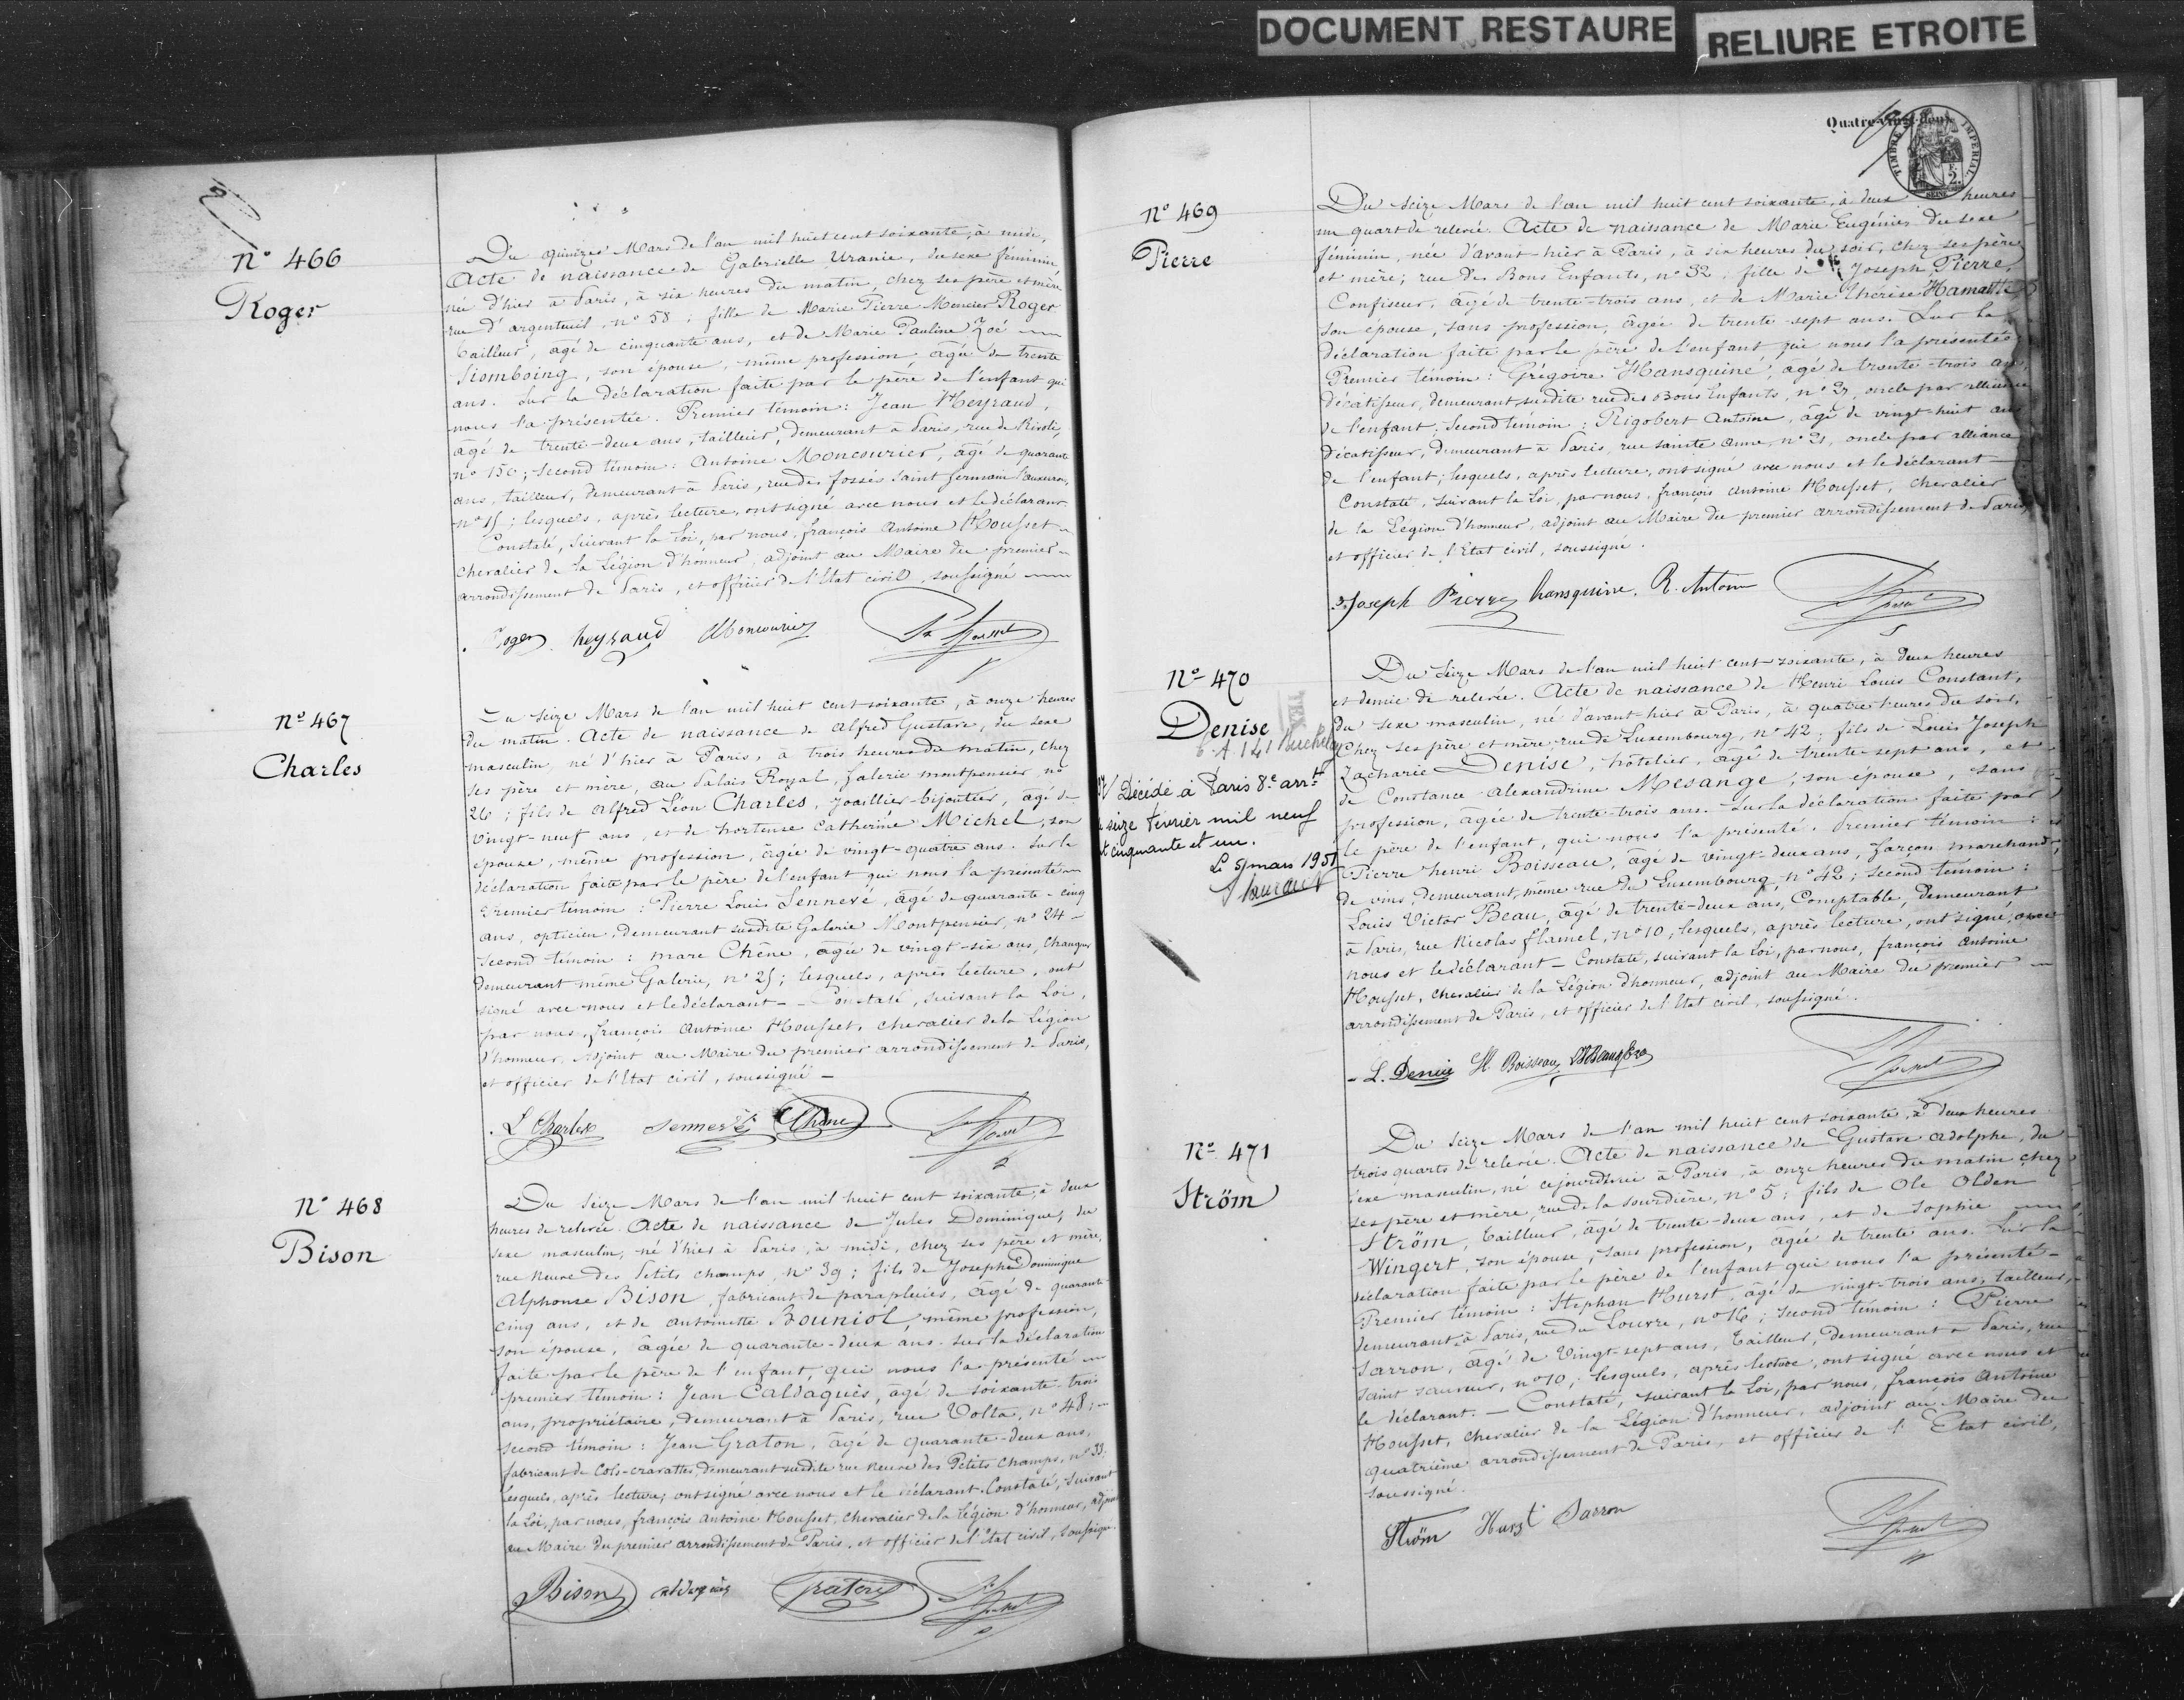 DOCUMENT RESTAURE
RELIURE ETROITE
N° 466
Roger
Du quinze Mars de l'an mil huit cent soixante, à midi,
Acte de naissance de Gabrielle Uranie, du sexe féminin
née d'hier à Paris, à six heures du matin, chez ses père et mère
rue d'argenteuil, n° 58; fille de Marie Pierre Mencier Roger
tailleur, âgé de cinquante ans, et de Marie Pauline Zoé
Siomboing, son épouse, même profession, âgée de trente
ans. Sur la déclaration faite par le père de l'enfant qui
nous l'a présentée. Premier témoin: Jean Heyraud,
âgé de trente-deux ans, tailleur, demeurant à Paris, rue de Rivoli,
n° 150; second témoin: Antoine Moncourier, âgé de quarante
ans, tailleur, demeurant à Paris, rue des fossés Saint Germain l'auxerrois,
n° 15; lesquels, après lecture, ont signé avec nous et le déclarant
Constaté, suivant la Loi, par nous, françois Antoine Housset
chevalier de la Légion d'honneur, adjoint au Maire du premier
arrondissement de Paris, et officier de l'Etat civil, soussigné
Roger heyraud Moncourier
N° 467
Charles
Du seize Mars de l'an mil huit cent soixante, à onze heures
du matin. Acte de naissance de Alfred Gustave, du sexe
masculin, né d'hier à Paris, à trois heures du matin, chez
ses père et mère, au Palais Royal, Galerie montpensier, n°
26; fils de Alfred Léon Charles, joaillier-bijoutier, âgé de
vingt-neuf ans, et de hortense Catherine Michel, son
épouse, même profession, âgée de vingt-quatre ans. Sur la
déclaration faite par le père de l'enfant qui nous l'a présenté
Premier témoin: Pierre Louis Sennevé, âgé de quarante-cinq
ans, opticien, demeurant susdite Galerie Montpensier, n° 24
Second témoin: marc Chêne, âgé de vingt-six ans, Changeur
demeurant même Galerie, n° 25; lesquels, après lecture, ont
signé avec nous et le déclarant - Constaté, suivant la Loi,
par nous, françois Antoine Housset, chevalier de la Légion
d'honneur, Adjoint au Maire du premier arrondissement de Paris,
et officier de l'Etat civil, soussigné -
L Charles Sennevé Chêne
N° 468
Bison
Du seize Mars de l'an mil huit cent soixante, à deux
heures de relevée. Acte de naissance de Jules Dominique, du
sexe masculin, né d'hier à Paris, à midi, chez ses père et mère,
rue Neuve des Petits champs, n° 39; fils de Joseph Dominique
Alphonse Bison, fabricant de parapluies, âgé de quarante
cinq ans, et de antoinette Bouniol, même profession,
son épouse, âgée de quarante-deux ans. Sur la déclaration
faite par le père de l'enfant, qui nous l'a présenté
premier témoin: Jean Caldaguès, âgé de soixante-trois
ans, propriétaire, demeurant à Paris, rue Volta, n° 48;
second témoin: Jean Graton, âgé de quarante-deux ans,
fabricant de Cols-cravattes, demeurant susdite rue Neuve des Petits Champs, n° 33.
lesquels, après lecture, ont signé avec nous et le déclarant. Constaté, suivant
la Loi, par nous, françois Antoine Housset, Chevalier de la Légion d'honneur, adjoint
au Maire du premier arrondissement de Paris, et officier de l'état civil, soussigné.
Bison caldaguès Graton
Quatre-vingt-deux
TIMBRE IMPERIAL
F. 2.
SEINE
N° 469
Pierre
Du seize Mars de l'an mil huit cent soixante, à deux heures
un quart de relevée. Acte de naissance de Marie Eugénie, du sexe
féminin, née d'avant-hier à Paris, à six heures du soir, chez ses père
et mère, rue des Bons Enfants, n° 32, fille de Joseph Pierre,
Confiseur, âgé de trente-trois ans, et de Marie Thérèse Hamaide
son épouse, sans profession, âgée de trente-sept ans. Sur la
déclaration faite par le père de l'enfant qui nous l'a présentée
Premier témoin: Grégoire Hansquine, âgé de trente-trois ans,
décatisseur, demeurant susdite rue des Bons Enfants, n° 27, oncle par alliance
de l'enfant; Second témoin: Rigobert Antoine, âgé de vingt-huit ans
décatisseur, demeurant à Paris, rue Sainte Anne, n° 21, oncle par alliance
de l'enfant; lesquels, après lecture, ont signé avec nous et le déclarant
Constaté, suivant la Loi, par nous, françois Antoine Housset, chevalier
de la Légion d'honneur, adjoint au Maire du premier arrondissement de Paris,
et officier de l'Etat civil, soussigné.
Joseph Pierre hansquine. R. Antoine
N° 470
Denise
Décédé à Paris 8e arrt
le seize février mil neuf
cent cinquante et un.
Le 5 mars 1951
Du seize Mars de l'an mil huit cent soixante, à deux heures
et demie de relevée. Acte de naissance de Henri Louis Constant,
du sexe masculin, né d'avant-hier à Paris, à quatre heures du soir,
Chez ses père et mère, rue de Luxembourg, n° 42; fils de Louis Joseph
Zacharie Denise, hôtelier, âgé de trente-sept ans, et
de Constance Alexandrine Mesange, son épouse, sans
profession, âgée de trente-trois ans. Sur la déclaration faite par
le père de l'enfant, qui nous l'a présenté. Premier témoin:
Pierre henri Boisseau, âgé de vingt-deux ans, garçon marchand
de vins, demeurant même rue de Luxembourg, n° 42; second témoin:
Louis Victor Beau, âgé de trente-deux ans, Comptable, demeurant
à Paris, rue Nicolas Flamel, n° 10, lesquels, après lecture, ont signé avec
nous et le déclarant - Constaté, suivant la Loi, par nous, françois Antoine
Housset, Chevalier de la Légion d'honneur, adjoint au Maire du premier
arrondissement de Paris, et officier de l'Etat civil, soussigné.
L. Denise H. Boisseau
N° 471
Ström
Du seize Mars de l'an mil huit cent soixante, à deux heures
trois quarts de relevée. Acte de naissance de Gustave Adolphe, du
sexe masculin, né cejourd'hui à Paris, à onze heures du matin chez
ses père et mère, rue de la sourdière, n° 5; fils de Ole Olden
Ström, Tailleur, âgé de trente-deux ans, et de Sophie
Wingert, son épouse, sans profession, âgée de trente ans. Sur la
déclaration faite par le père de l'enfant qui nous l'a présenté -
Premier témoin: Stephan Hurst, âgé de vingt-trois ans, tailleur,
demeurant à Paris, rue du Louvre, n° 16; second témoin: Pierre
Sarron, âgé de Vingt-sept ans, Tailleur, demeurant à Paris, rue
Saint Sauveur, n° 10; lesquels, après lecture, ont signé avec nous et
le déclarant. - Constaté, suivant la Loi, par nous, françois Antoine
Housset, Chevalier de la Légion d'honneur, adjoint au Maire du
quatrième arrondissement de Paris, et officier de l'Etat civil,
soussigné.
Ström Hurst Sarron